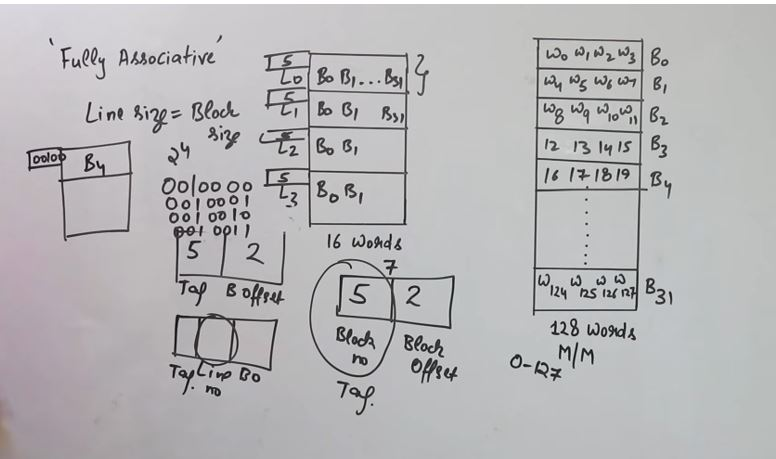 'Fully Associative'
Line size = Block
size
2⁴
00100 B4
00100 00
00100 01
00100 10
00100 11
5 2
Tag B Offset
Tag Line BO
no
5
L0 B0 B1...B31
5
L1 B0 B1 B31
5
L2 B0 B1
5
L3 B0 B1
16 words
7
5 2
Block
no
Block
Offset
Tag.
W0 W1 W2 W3 B0
W4 W5 W6 W7 B1
W8 W9 W10 W11 B2
12 13 14 15 B3
16 17 18 19 B4
W124 W125 W126 W127 B31
128 words
M/M
0-127